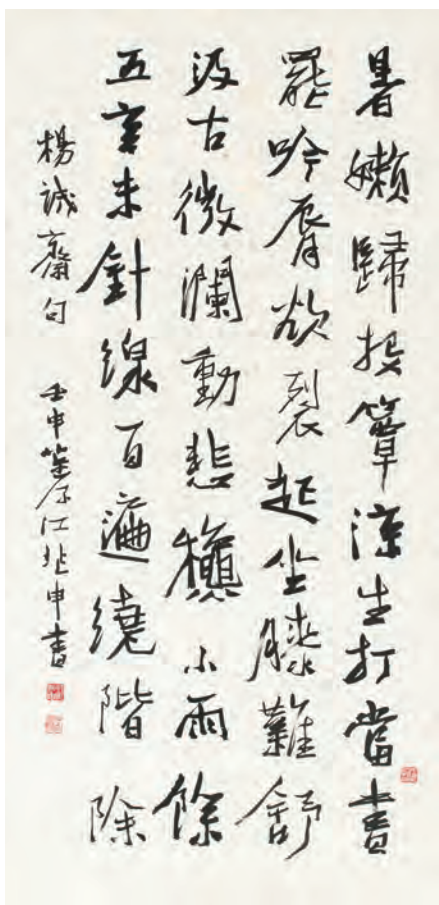 暑嬾歸投簟涼生打當書
罷吟脣欲裂起坐膝難舒
汲古微瀾動悲穐小雨餘
五言未針線百遍繞階除
楊誠齋句 壬申江兆申書